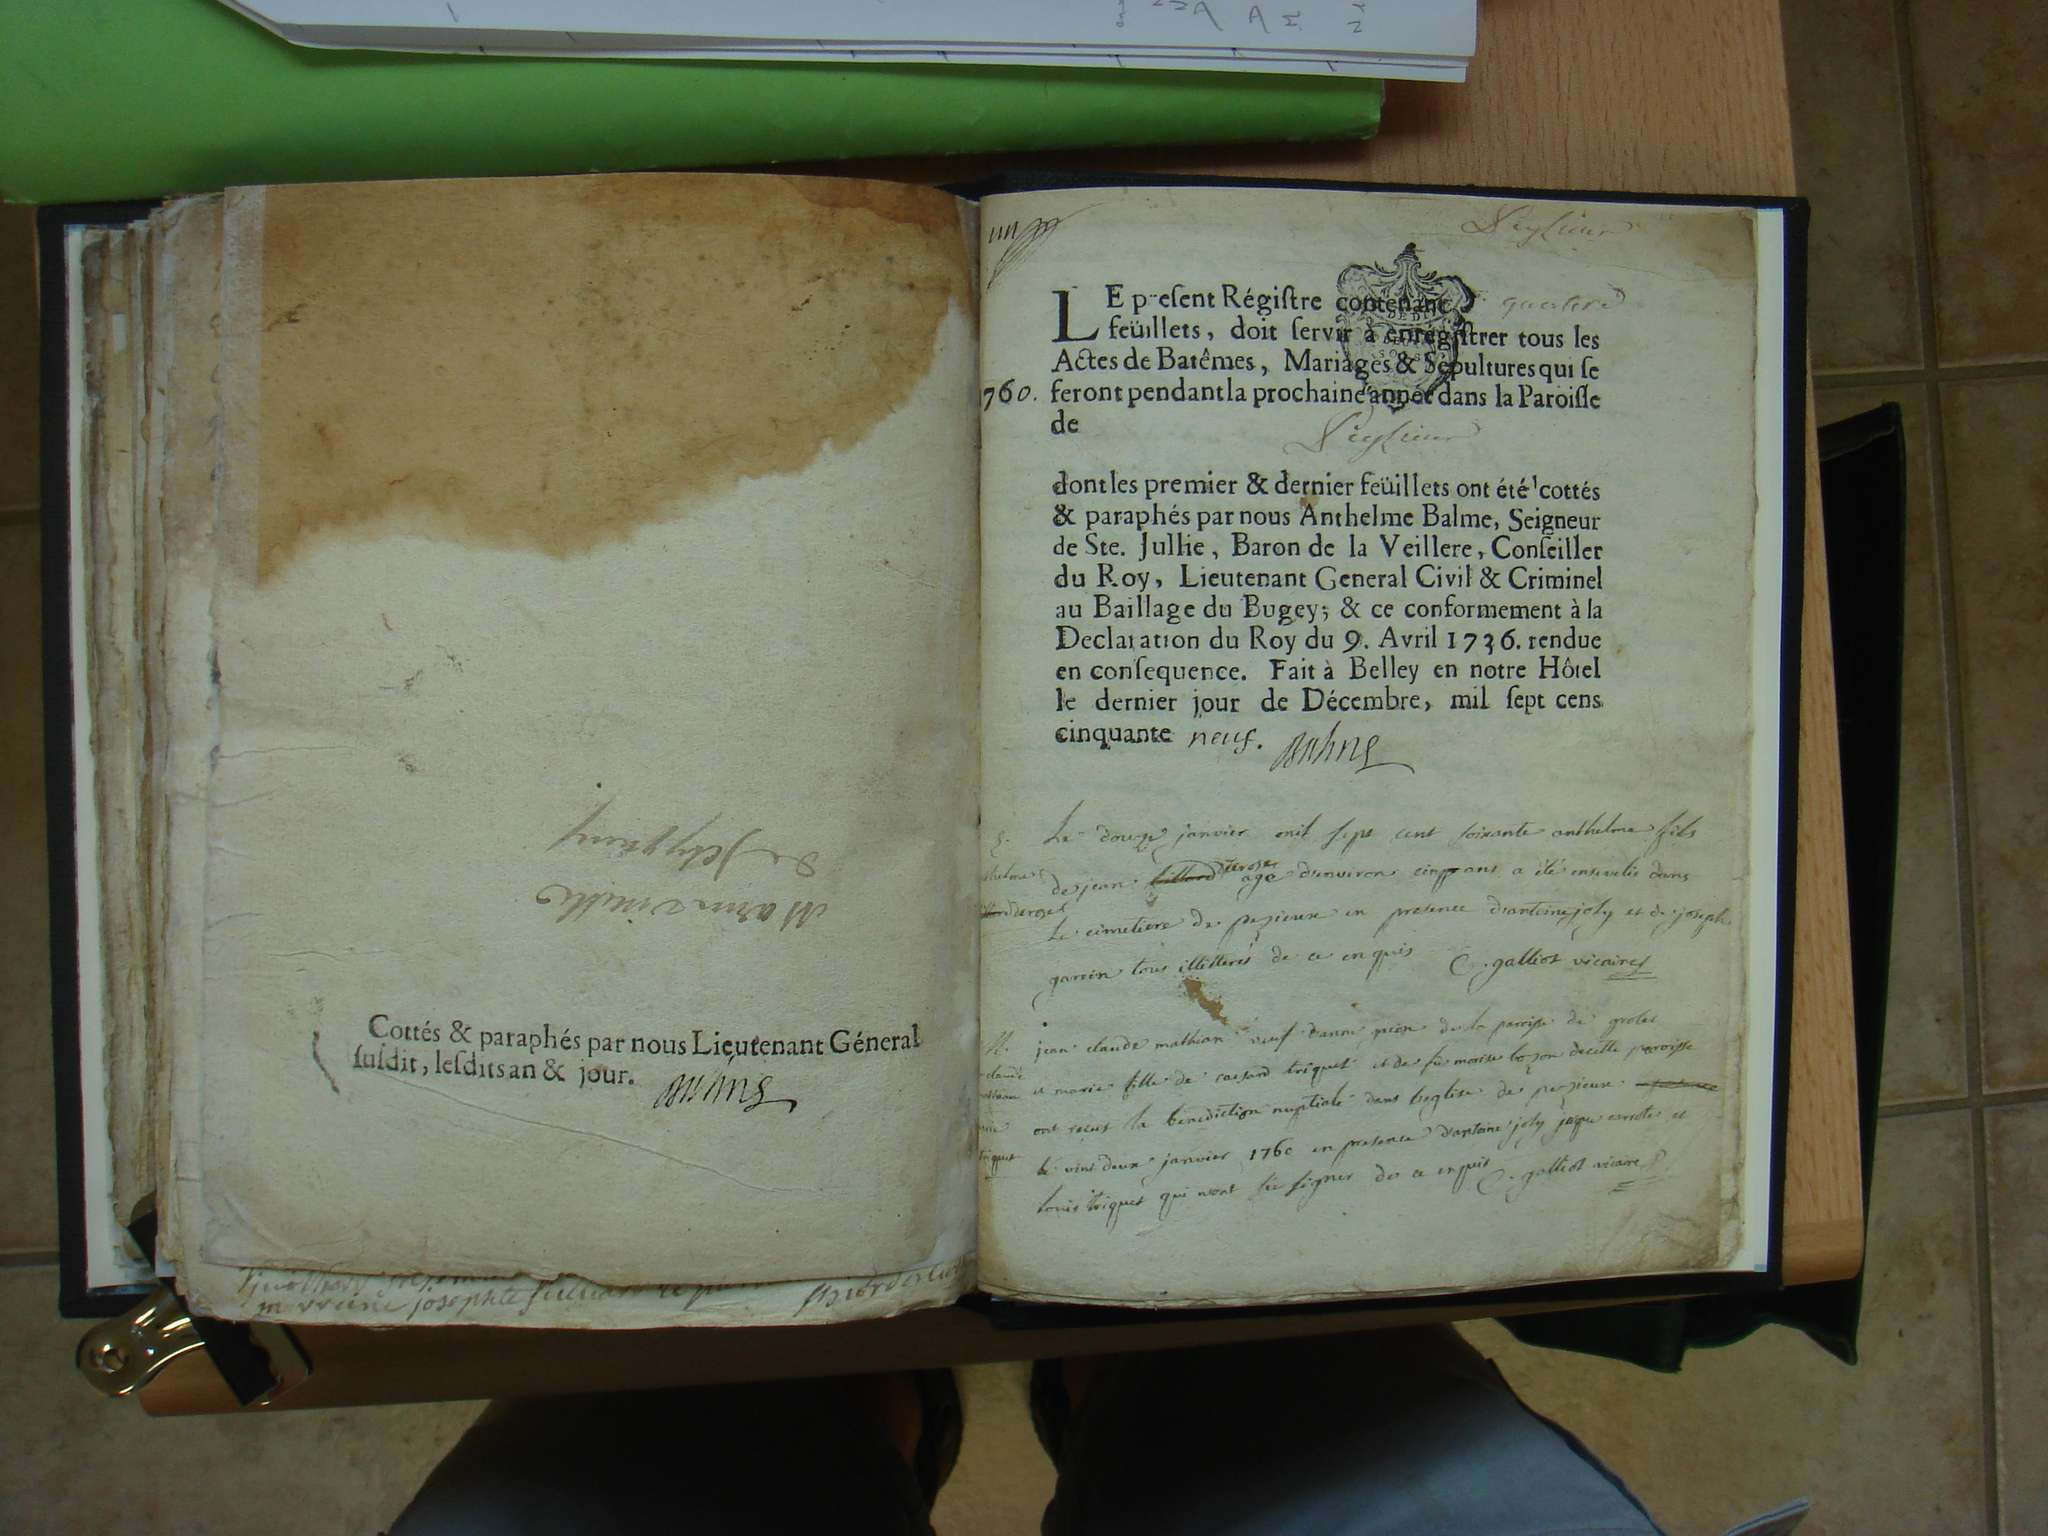 Cottés & paraphés par nous Lieutenant Géneral
susdit, lesdits an & jour.
Peysieur
LE present Régistre contenant quatre
feüillets, doit servir à enrégistrer tous les
Actes de Batêmes, Mariages & Sepultures qui se
1760. feront pendant la prochaine année dans la Paroisse
de
Peysieur
dont les premier & dernier feüillets ont été cottés
& paraphés par nous Anthelme Balme, Seigneur
de Ste. Jullie, Baron de la Veillere, Conseiller
du Roy, Lieutenant General Civil & Criminel
au Baillage du Bugey; & ce conformement à la
Declaration du Roy du 9. Avril 1736. rendue
en consequence. Fait à Belley en notre Hôtel
le dernier jour de Décembre, mil sept cens
cinquante neuf.
Le douze janvier mil sept cent soixante anthelme fils
de jean derose age d'environ cinq ans a été ensevelis dans
le cimetiere de pezieux en presence d'antoine joly et de joseph
garcin tous illitterés de ce enquis C. galliot vicaire
jean claude mathian veuf d'anne de la paroisse de groslee
et marie fille de triquet et de fue bozon de cette paroisse
ont reçus la benediction nuptiale dans l'eglise de pezieux
le vint deux janvier 1760 en presence d'antoine joly et
louis triquet qui n'ont su signer de ce enquis C. galliot vicaire